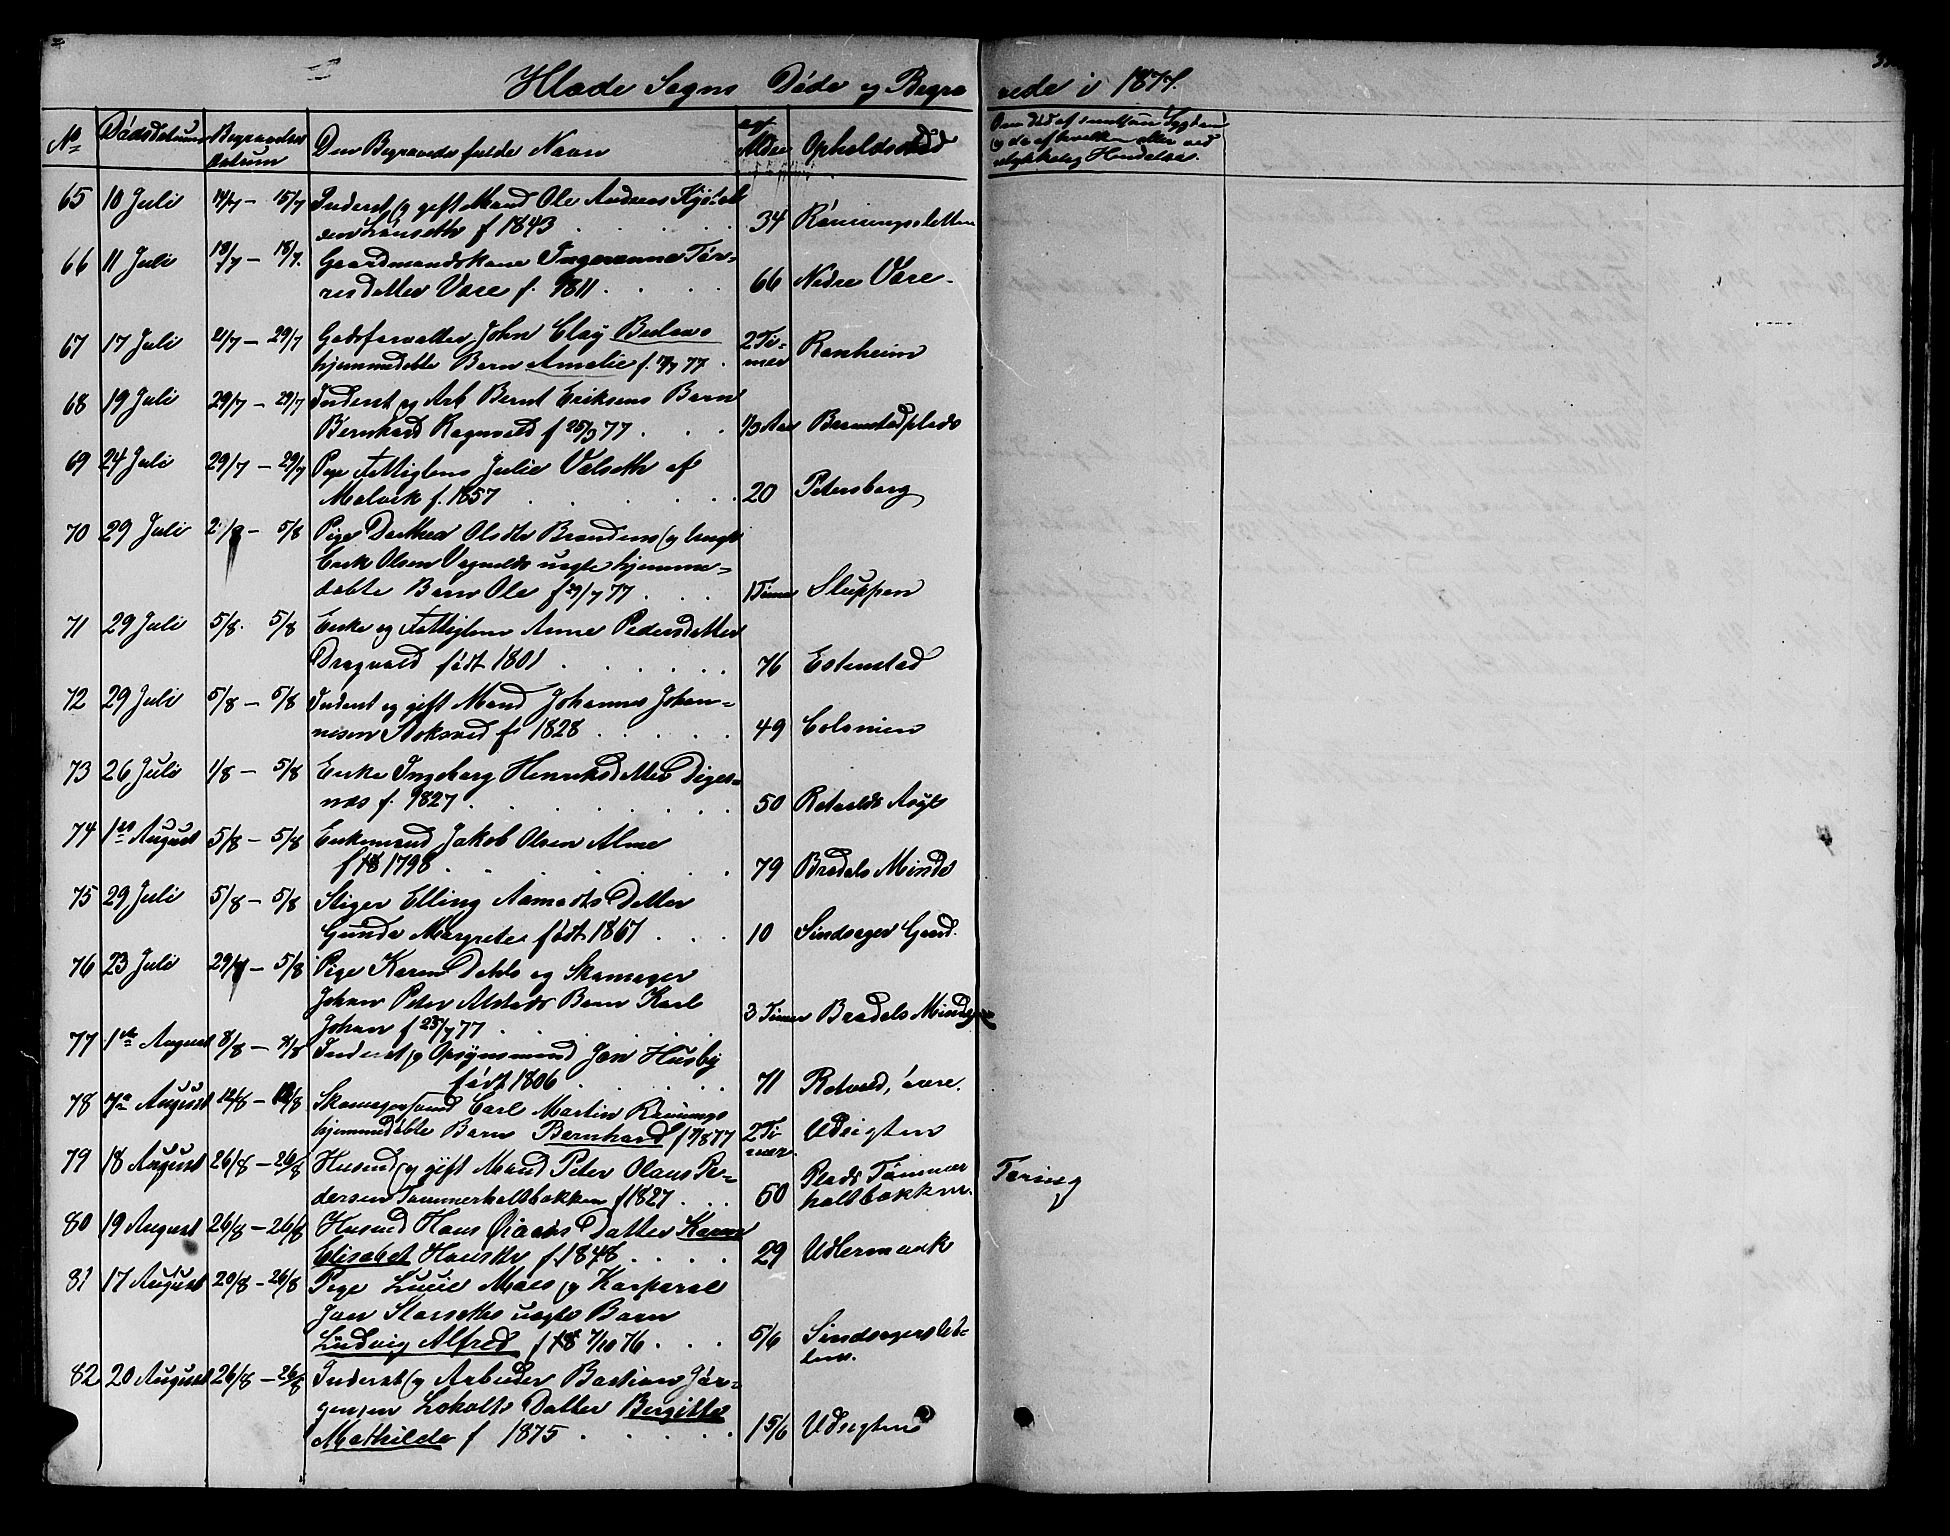 Hlade Sogns Døde og Begra vede i 1877.
No Dødsdatum Begravelses Datum Den Begravedes fulde Navn Alder Opholdssted Om død af smitsom Sygdom og da af hvilken eller ved ulykkelig Hendelse.
65 10 Juli 14/7 – 15/7 Inderst og gift Mand Ole Andreas
f 1843 34 Rønningsletten
66 11 Juli 18/7 – 18/7. Gaardmandskone Ingeranna Tør-
resdatter Være f. 1811 66 Nedre Være.
67 17 Juli 21/7 – 29/7 Godsforvalter John Clay
hjemmedøbte Barn Amalie f. 77 2 Ti-mer Ranheim
68 19 Juli 29/7 – 29/7 Inderst og Arb Bernt Eriksens Barn
Bernhard Ragnvald f 25/3 77 1/3 Aar
69 24 Juli 29/7 – 29/7 Pige Fattiglem Julie Valseth af
Malvik f. 1857 20 Petersborg
70 29 Juli 2/8 – 5/8 Pige Dorthea Olsdtr og
Olsen uegte hjemme-
døbte Barn Ole f 29/7 77 1 Time Sluppen
71 29 Juli 5/8. 5/8 Enke og Fattiglem Anne Pedersdatter
Dragvold født 1801 76 Estenstad
72 29 Juli 5/8 – 5/8 Inderst og gift Mand Johannes Johan-
nesen Stoksved f 1828 49 Colonien
73 26 Juli 1/8 – 5/8 Enke Ingeborg Henriksdatter Diges-
næs f. 1827 50 Rotvolds Asyl
74 1ste August 5/8 – 5/8 Enkemand Jakob Olsen Alme
f 18 1798 79 Bradels Minde
75 29 Juli 5/8 – 5/8 Stiger Elling Aamodts Datter
Gunda Margrete født 1867 10 Sindsager Grud.
76 23 Juli 29/7 – 5/8 Pige Karen Dahls og Skomager
Johan Peter Alstads Barn Karl
Johan f 23/7 77 3 Timer Bradels Minde
77 1ste August 8/8 – 8/8 Inderst og Opsynsmand Jon Husby
født 1806 71 Rotvold,
78 7de August 12/8 – 12/8 Skomagersvend Carl Martin Rønnings
hjemmedøbte Barn Bernhard f 7/8 77 2 Ti-mer. Udsigten
79 18 August 26/8 – 26/8 Husmd og gift Mand Peter Olaus Pe-
dersen Tømmerholtbakken f 1827 50 Plads Tømmer
holtbakken. Tæring
80 19 August 26/8 – 26/8 Husmd Hans Datter Karen
Elisabet Hansdtr f. 1848 29 Udlermark
81 17 August 20/8 – 26/8 Pige Lucie Moes og Korporal
Jon Storseths uegte Barn
Ludvig Alfred f 18 7/10 76 5/6 Sindsagerslet-
ten.
82 20 August 26/8 – 26/8 Inderst og Arbeider Bastian Jør-
gensen Loholts Datter Bergitte
Mathilde f 1875 1 5/6 Udsigten